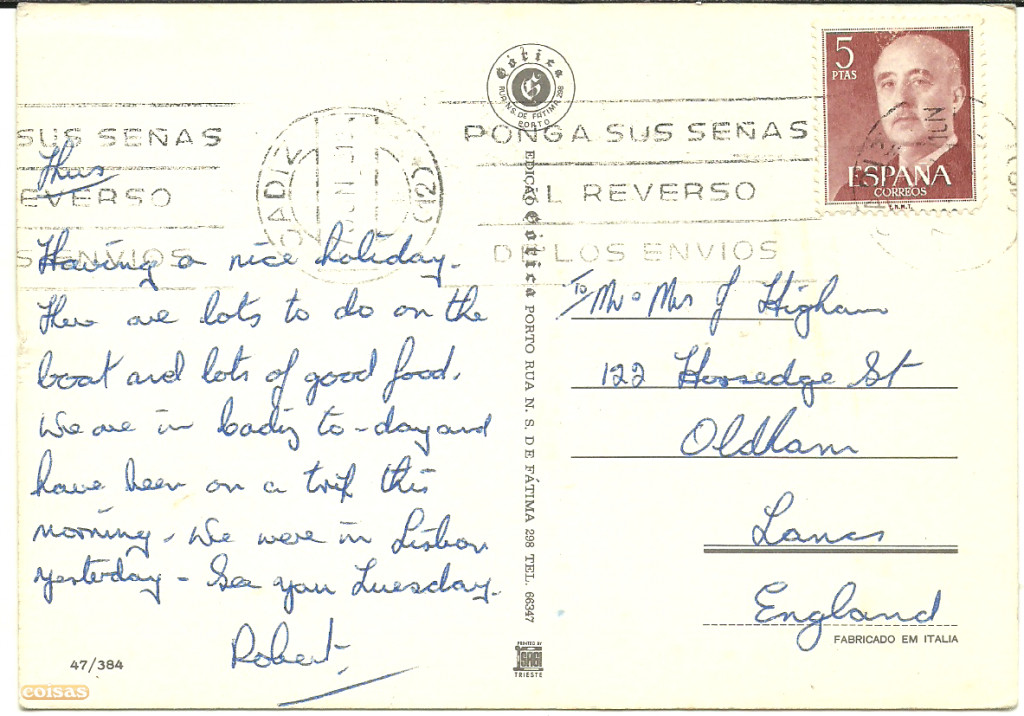 Gótica
RUA N. S. DE FÁTIMA 298
PORTO
5
PTAS
ESPAÑA
CORREOS
F.N.M.T.
SUS SEÑAS
REVERSO
S ENVIOS
CADIZ
(12)
PONGA SUS SEÑAS
AL REVERSO
DE LOS ENVIOS
JUN
Thurs
Having a nice holiday.
There are lots to do on the
boat and lots of good food.
We are in Cadiz to-day and
have been on a trip this
morning. We were in Lisbon
yesterday - See you Tuesday.
Robert.
EDIÇÃO Gótica PORTO RUA N. S. DE FÁTIMA 298 TEL. 66347
To Mr & Mrs J Higham
122 Horsedge St
Oldham
Lancs
England
FABRICADO EM ITALIA
PRINTED BY
SAGI
TRIESTE
47/384
coisas